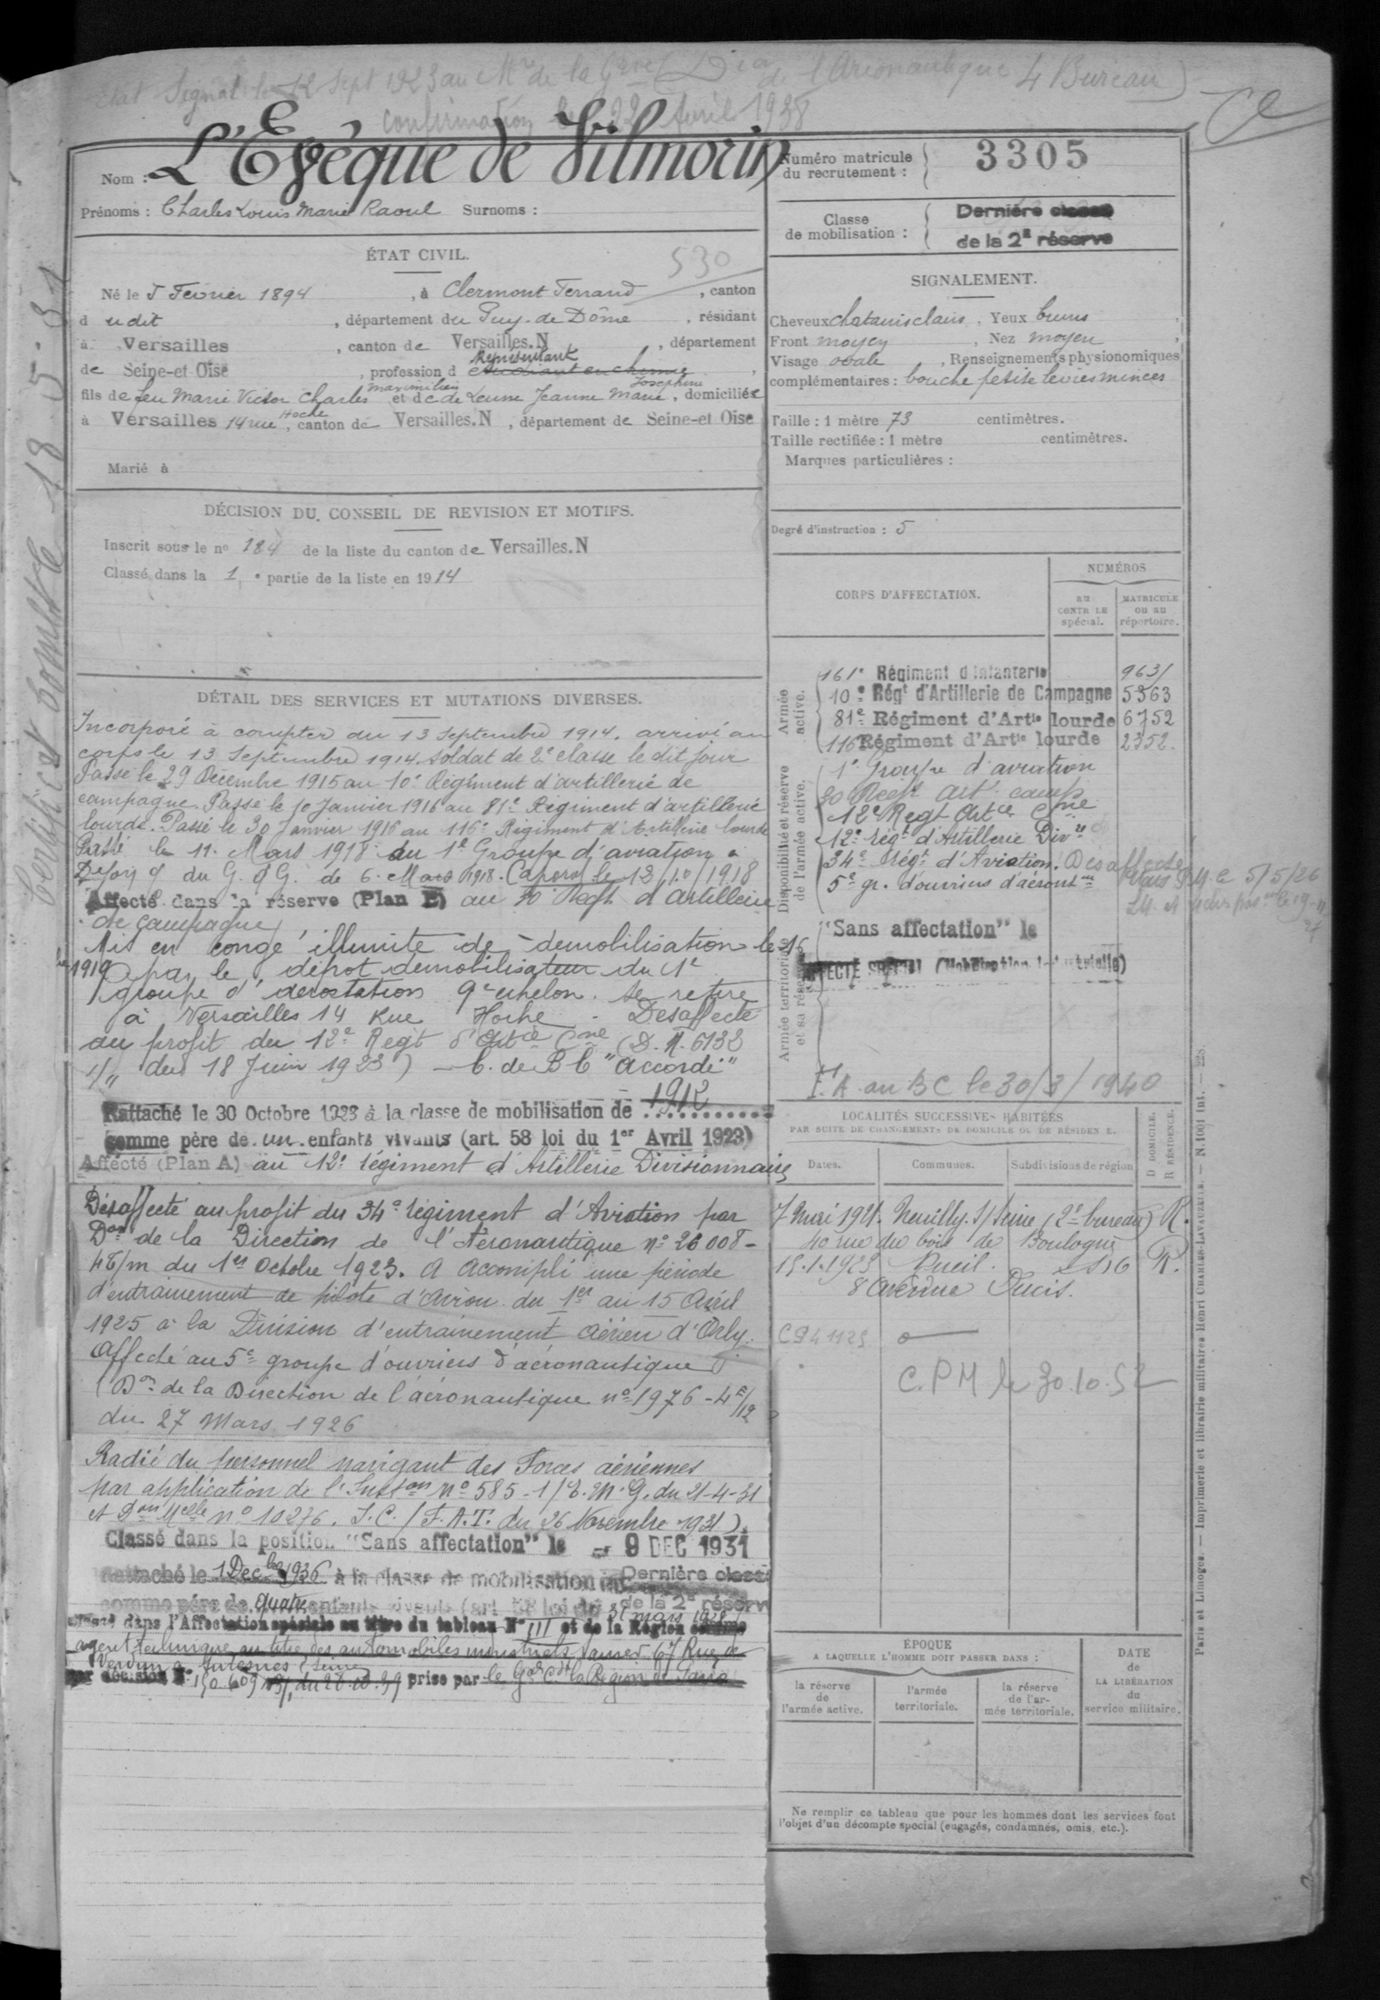 Etat Signal le 12 Sept 1923 au Mre de la Gre (Dion de l'Aéronautique 4 Bureau)
confirmation le 22 Avril 1938
Certificat Combtt le 18-5-31
Nom : L'Evêque de Vilmorin
Prénoms : Charles Louis Marie Raoul Surnoms :
Numéro matricule du recrutement : 3305
Classe de mobilisation : Dernière classe de la 2e réserve
ÉTAT CIVIL.
530
Né le 5 Février 1894, à Clermont Ferrand, canton
dudit, département du Puy-de-Dôme, résidant
à Versailles, canton de Versailles.N, département
Représentant
de Seine-et-Oise, profession d étudiant en chimie,
Maximilien Josephine
fils de feu Marie Victor Charles et de de Leusse Jeanne Marie, domiciliée
à Versailles 14 rue Hoche, canton de Versailles.N, département de Seine-et-Oise
Marié à
SIGNALEMENT.
Cheveux chatains clairs, Yeux bruns,
Front moyen, Nez moyen,
Visage ovale, Renseignements physionomiques
complémentaires : bouche petite lèvres minces
Taille : 1 mètre 73 centimètres.
Taille rectifiée : 1 mètre centimètres.
Marques particulières :
Degré d'instruction : 5
DÉCISION DU CONSEIL DE REVISION ET MOTIFS.
Inscrit sous le no 184 de la liste du canton de Versailles.N
Classé dans la 1e partie de la liste en 1914
DÉTAIL DES SERVICES ET MUTATIONS DIVERSES.
Incorporé à compter du 13 Septembre 1914. arrivé au
corps le 13 Septembre 1914. Soldat de 2e classe le dit jour
Passé le 29 Décembre 1915 au 10e Régiment d'artillerie de
campagne. Passé le 10 Janvier 1916 au 81e Régiment d'artillerie
lourde. Passé le 30 Janvier 1916 au 116e Régiment d'Artillerie lourde
Passé le 11 Mars 1918 au 1e Groupe d'aviation
Déson du G.Q.G. de 6 Mars 1918. Caporal le 12/10/1918
Affecté dans la réserve (Plan E) au 30 Regt d'artillerie
de campagne
Mis en congé illimité de démobilisation le 16
1919 par le dépôt démobilisateur du 1e
groupe d'aérostation 9e echelon. se retire
à Versailles 14 Rue Hoche - Désaffecté
au profit du 12e Regt d'Artie Cne (D.M. 6132
1/11 du 18 Juin 1923) - C. de B C "accordé"
Rattaché le 30 Octobre 1923 à la classe de mobilisation de 1912
comme père de un enfants vivants (art. 58 loi du 1er Avril 1923)
Affecté (Plan A) au 12e régiment d'Artillerie Divisionnaire
Désaffecté au profit du 34e régiment d'Aviation par
Don de la Direction de l'Aéronautique no 26008-
4E/m du 1er Octobre 1923. A accompli une période
d'entrainement de pilote d'avion du 1er au 15 Avril
1925 à la Division d'entrainement aérien d'Orly.
Affecté au 5e groupe d'ouvriers d'aéronautique
(Don de la Direction de l'aéronautique no 1976-4E/12
du 27 Mars 1926
Radié du personnel navigant des Forces aériennes
par application de l'Instron no 585-1/E.M.G. du 21-4-31
et Don Melle no 10276. I.C./F.A.T. du 26 Novembre 1931).
Classé dans la position "Sans affectation" le 9 DEC 1931
Rattaché le 1 Decbre 1936 à la classe de mobilisation de Dernière classe
comme père de quatre enfants vivants (art. 58 loi du 31 mars 1928) de la 2e réserve
Classé dans l'Affectation spéciale au titre du tableau No III et de la Région comme
agent technique au titre des automobiles industriels Vausser 67 Rue de
Verdun à Suresnes (Seine)
par décision No du 28.10.39 prise par le Gal Cdt la Région de Paris
CORPS D'AFFECTATION.
NUMÉROS
AU CONTRÔLE spécial.
MATRICULE ou au répertoire.
Armée active.
161e Régiment d'Infanterie 9631
10e Régt d'Artillerie de Campagne 5363
81e Régiment d'Artie lourde 6752
116 Régiment d'Artie lourde 2352.
Disponibilité et réserve de l'armée active.
1e Groupe d'aviation
30 Regt art. camp
12e Regt Artie Cne
12e régt d'Artillerie Divre
34e Régt d'Aviation. Désaffecté
5e gr. d'ouvriers d'aéronte
5/5/26
Armée territoriale et sa réserve.
"Sans affectation" le
AFFECTÉ SPÉCIAL (Mobilisation Industrielle)
F.A. au BC le 30/3/1940
LOCALITÉS SUCCESSIVES HABITÉES
PAR SUITE DE CHANGEMENTS DE DOMICILE OU DE RÉSIDENCE.
Dates. Communes. Subdivisions de région. D DOMICILE. R RÉSIDENCE.
7 Mai 1921. Neuilly S/ Seine (2e bureau) R.
40 rue du bois de Boulogne
15.1.1923 Rueil. R.
8 Avenue Ducis.
C.P.M le 30.10.52
ÉPOQUE
A LAQUELLE L'HOMME DOIT PASSER DANS :
la réserve de l'armée active.
l'armée territoriale.
la réserve de l'armée territoriale.
DATE de LA LIBÉRATION du service militaire.
Ne remplir ce tableau que pour les hommes dont les services font
l'objet d'un décompte spécial (engagés, condamnés, omis, etc.).
Paris et Limoges. — Imprimerie et librairie militaires Henri CHARLES-LAVAUZELLE. — N. 1091 int. — 223.